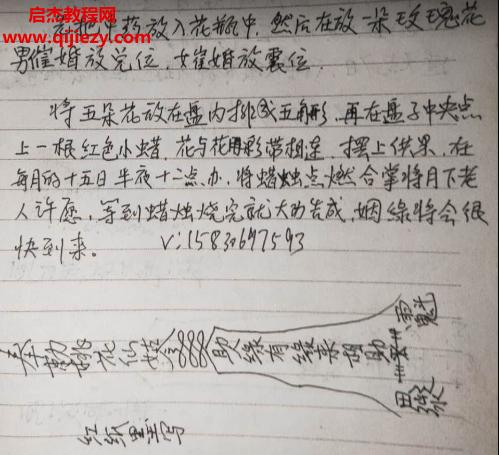 启杰教程网
www.qijiezy.com
放入花瓶中,然后在放一朵玫瑰花
男催婚放兑位,女催婚放震位.
将五朵花放在盘内排成五角形,再在盘子中央点
上一根红色小蜡,花与花用彩带相连,摆上供果,在
每月的十五日半夜十二点办,将蜡烛点燃合掌将月下老
人许愿,等到蜡烛烧完就大功告成,姻缘将会很
快到来。 V:15830697593
奉勒桃花仙姑
助缘有缘来相助
红纸里写